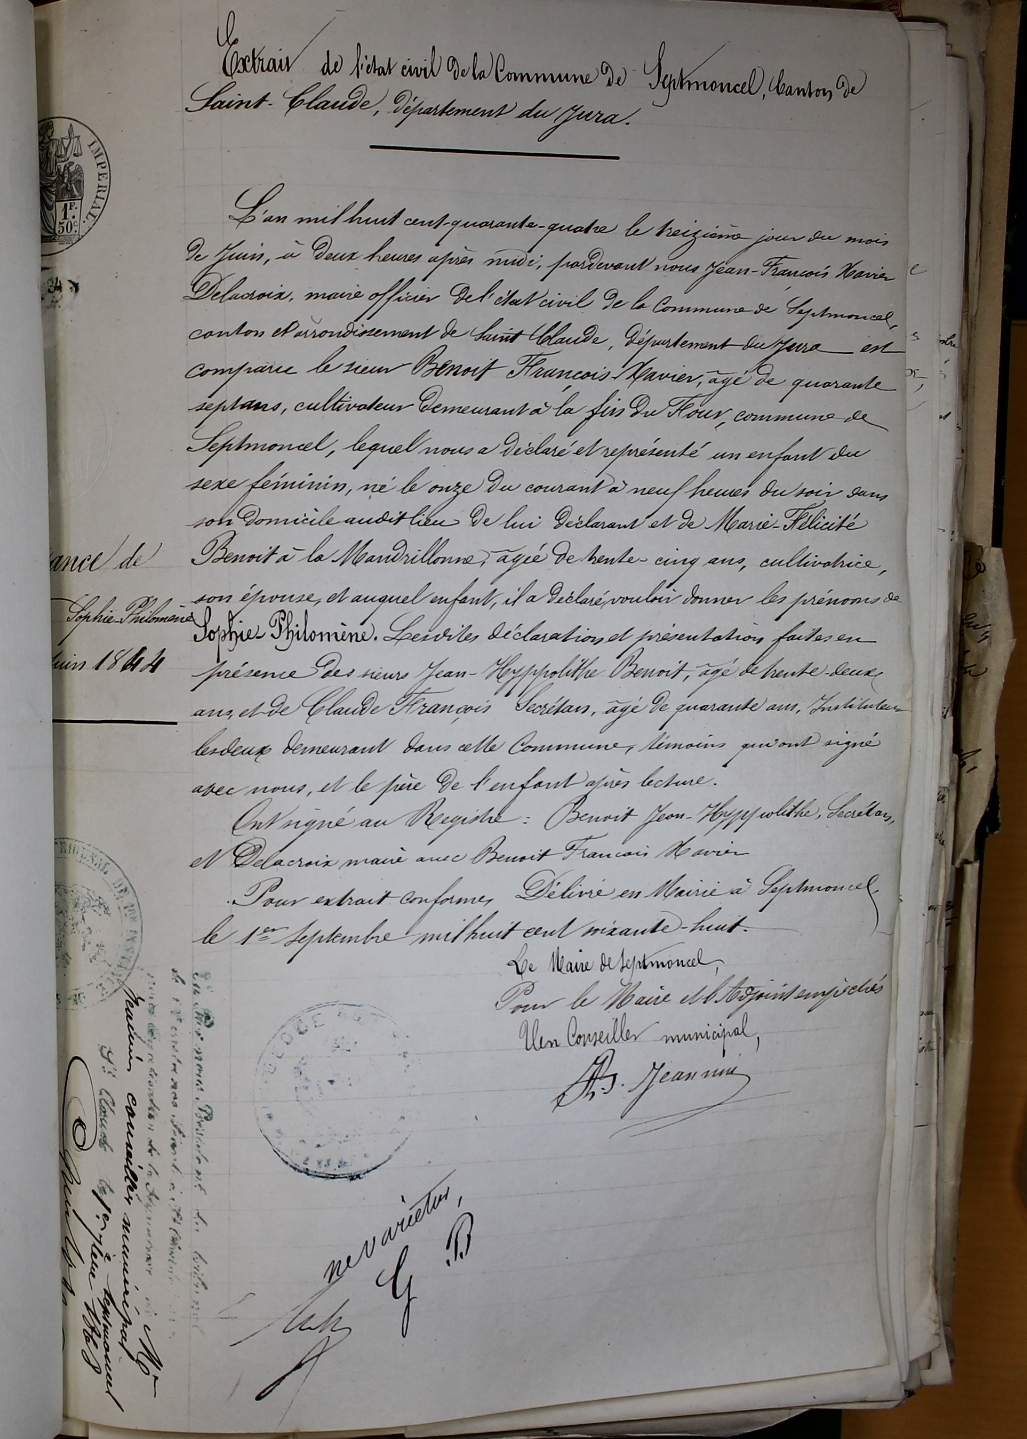 Extrait de l'état civil de la Commune de Septmoncel, Canton de
Saint-Claude, département du Jura.
IMPERIAL
1F.
50c.
L'an mil huit cent quarante-quatre le treizième jour du mois
de Juin, à deux heures après midi, pardevant nous Jean-François Xavier
Delacroix, maire officier de l'état civil de la Commune de Septmoncel,
canton et arrondissement de Saint Claude, département du Jura est
comparu le sieur Benoit François-Xavier, âgé de quarante
sept ans, cultivateur demeurant à la fin du Flour, commune de
Septmoncel, lequel nous a déclaré et représenté un enfant du
sexe féminin, né le onze du courant à neuf heures du soir dans
son domicile audit lieu de lui déclarant et de Marie-Félicité
Benoit à la Mandrillonne, âgée de trente-cinq ans, cultivatrice,
son épouse, et auquel enfant, il a déclaré vouloir donner les prénoms de
Sophie-Philomène. Lesdites déclaration et présentation faites en
présence des sieurs Jean-Hyppolithe Benoit, âgé de trente-deux
ans, et de Claude François Secrétan, âgé de quarante ans, Instituteur
les deux demeurant dans cette Commune, témoins qui ont signé
avec nous, et le père de l'enfant après lecture.
Ont signé au Registre : Benoit Jean-Hyppolithe, Secrétan,
et Delacroix maire avec Benoit François Xavier
Pour extrait conforme, Délivré en Mairie à Septmoncel,
le 1er Septembre mil huit cent soixante-huit.
Le Maire de Septmoncel,
Pour le Maire et l'Adjoint empêchés
Un Conseiller municipal,
Ph. J. Jeannin
ance de
Sophie-Philomène
uin 1844
ne varietur,
G B
Jeannin conseiller municipal
St Claude le